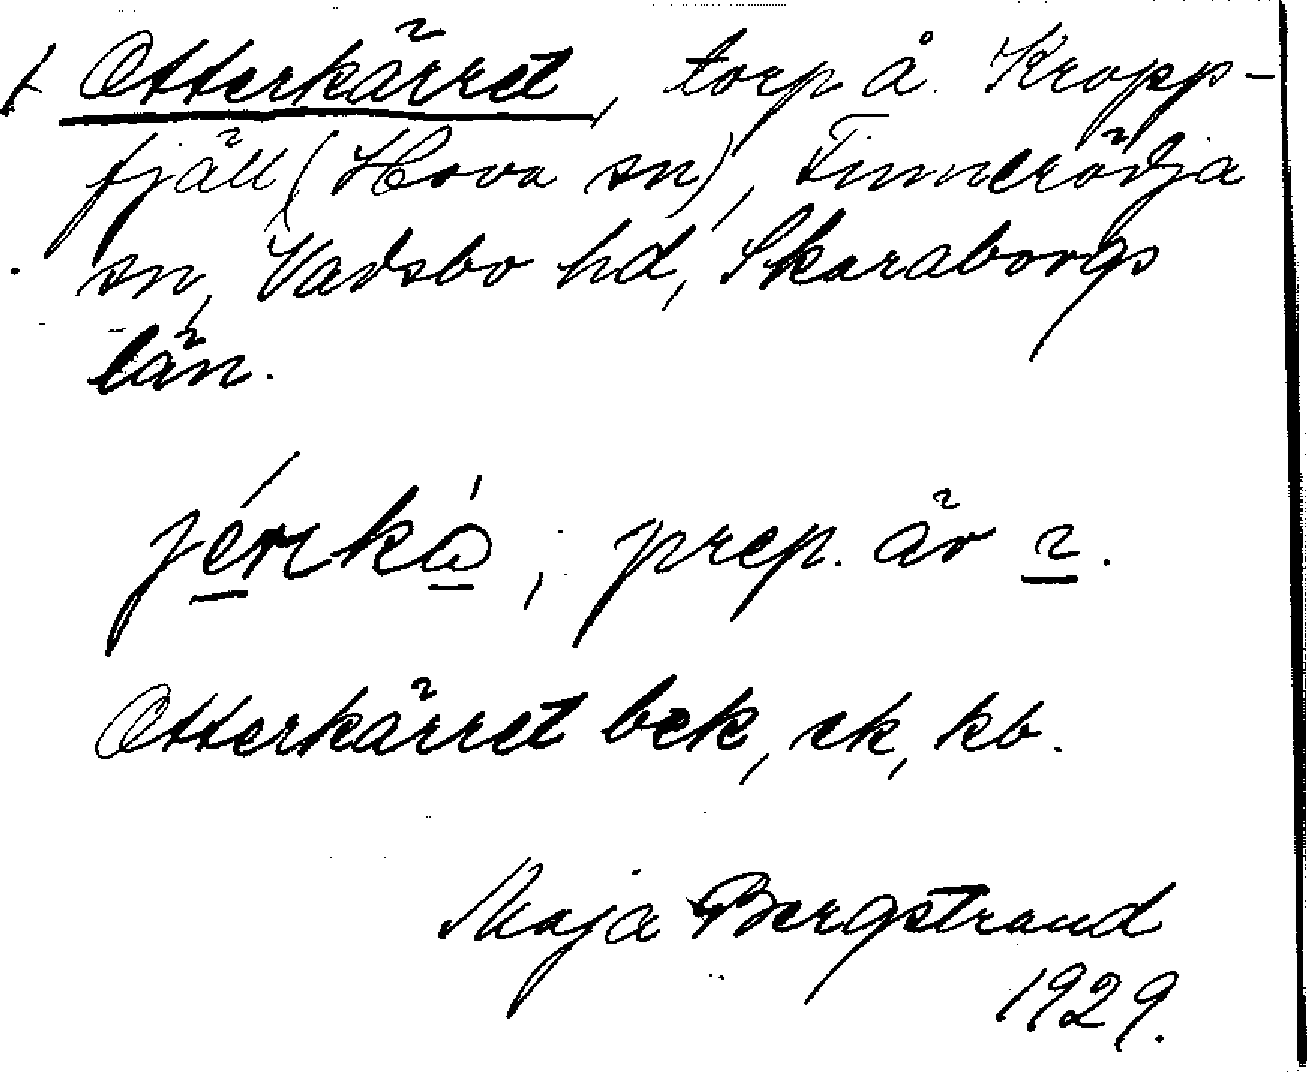 Otterkärret, torp å Kropp-
fjäll (Hova sn), Finnerödja
sn, Vadsbo hd, Skaraborgs
län.
prep. är
Otterkärret bek, ek, kb.
Maja Bergstrand
1929.